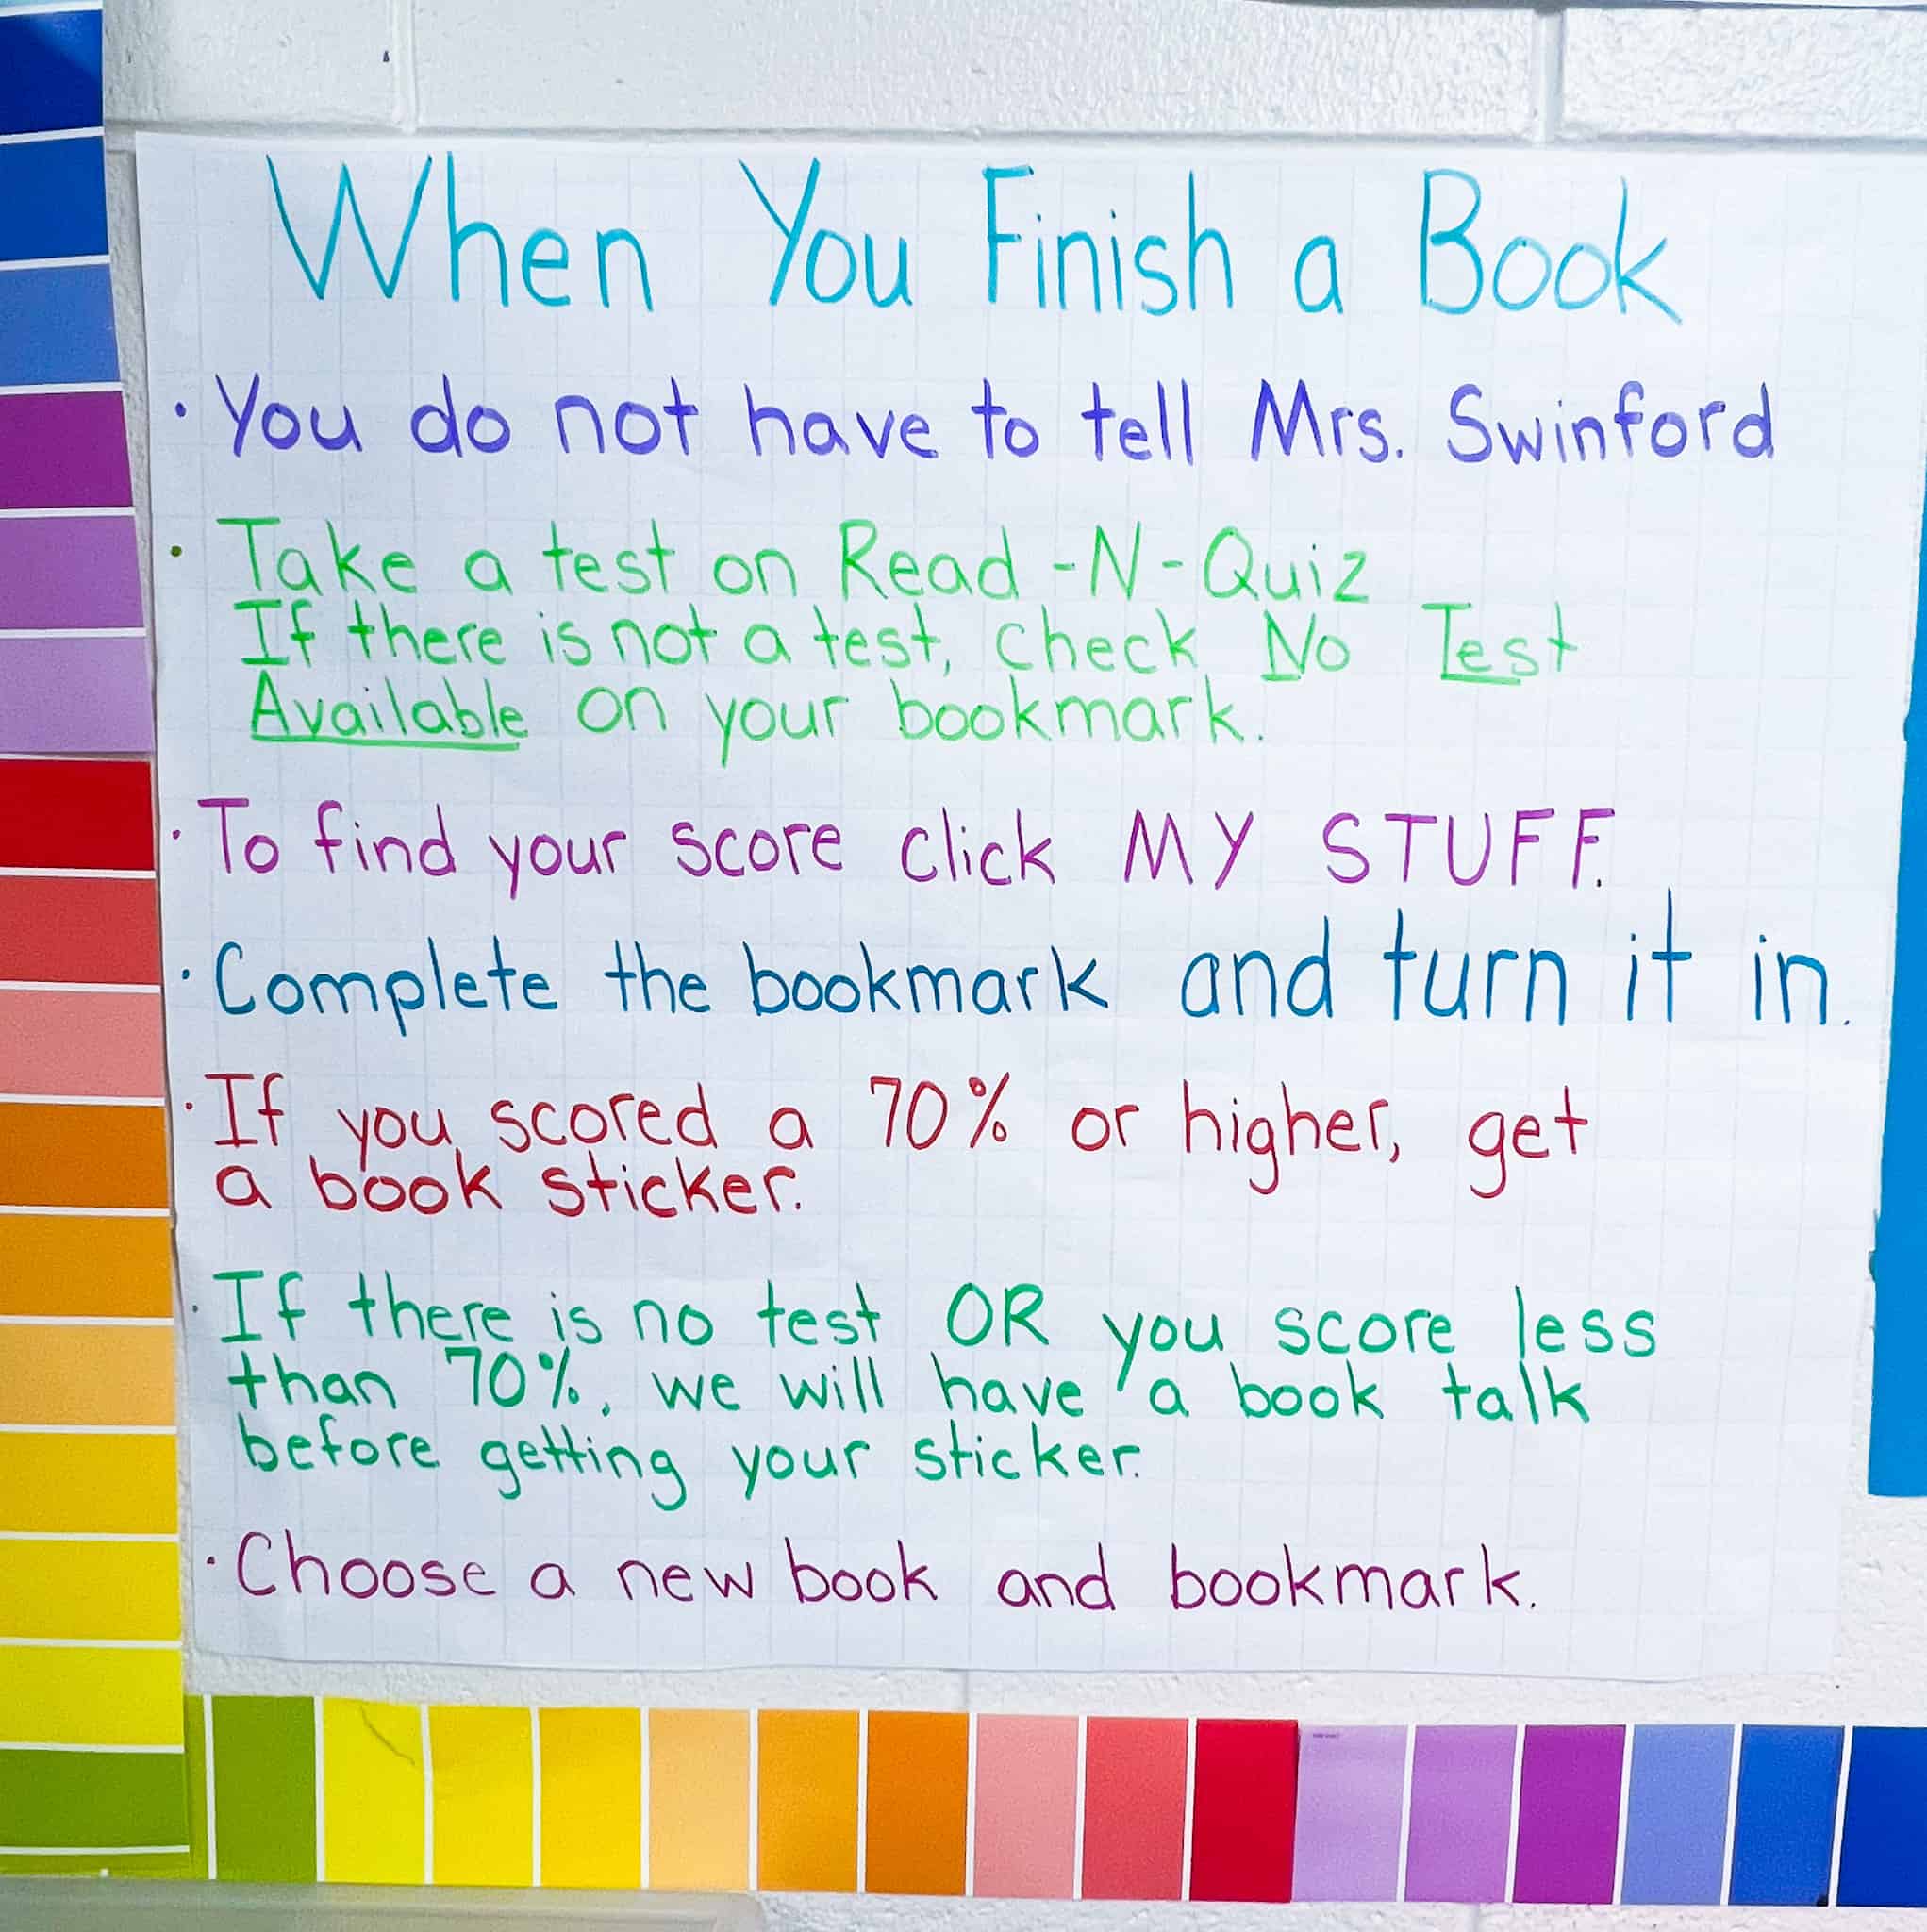 When You Finish a Book
· You do not have to tell Mrs. Swinford
· Take a test on Read-N-Quiz
If there is not a test, check No Test
Available on your bookmark.
· To find your score click MY STUFF.
· Complete the bookmark and turn it in.
· If you scored a 70% or higher, get
a book sticker.
· If there is no test OR you score less
than 70%, we will have a book talk
before getting your sticker.
· Choose a new book and bookmark.